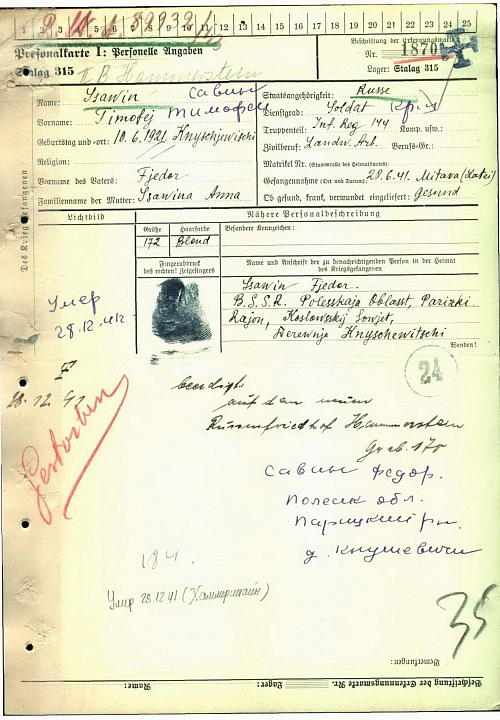 1 2 3 4 5 6 7 8 9 10 11 12 13 14 15 16 17 18 19 20 21 22 23 24 25
Personalkarte I: Personelle Angaben
Beschriftung der Erkennungsmarke
Nr. 1870
Stalag 315 II B Hammerstein
Lager: Stalag 315
Des Kriegsgefangenen
Name: Ssawin Савин
Staatsangehörigkeit: Russe
Vorname: Timofej Тимофей
Dienstgrad: Soldat
Truppenteil: Inf. Reg 144 Komp. usw.
Geburtstag und -ort: 10.6.1921 Knyschjewitschi
Zivilberuf: Landw. Arb. Berufs-Gr.
Religion:
Matrikel Nr. (Stammrolle des Heimatstaates)
Vorname des Vaters: Fjedor
Gefangennahme (Ort und Datum) 29.6.41. Mitava
Familienname der Mutter: Ssawina Anna
Ob gesund, krank, verwundet eingeliefert: Gesund
Lichtbild
Nähere Personalbeschreibung
Größe Haarfarbe Besondere Kennzeichen:
172 Blond
Fingerabdruck des rechten! Zeigefingers
Name und Anschrift der zu benachrichtigenden Person in der Heimat des Kriegsgefangenen
Ssawin Fjedor.
B.S.S.R. Polesskaja Oblasst, Parizki
Rajon, Koslowsskij Sowjet,
Derewnja Knyschewitschi
Wenden!
Умер
28.12.41г.
24
F
28.12.41
Gestorben
beerdigt
auf den neuen
Russenfriedhof Hammerstein
Grab. 170
Савин Федор.
Полеск обл.
Парицкий рн.
д. Кнушевичи
184.
Умер 28.12.41 (Хаммерштайн)
35
Bemerkungen:
Beschriftung der Erkennungsmarke Nr. Lager: Name: